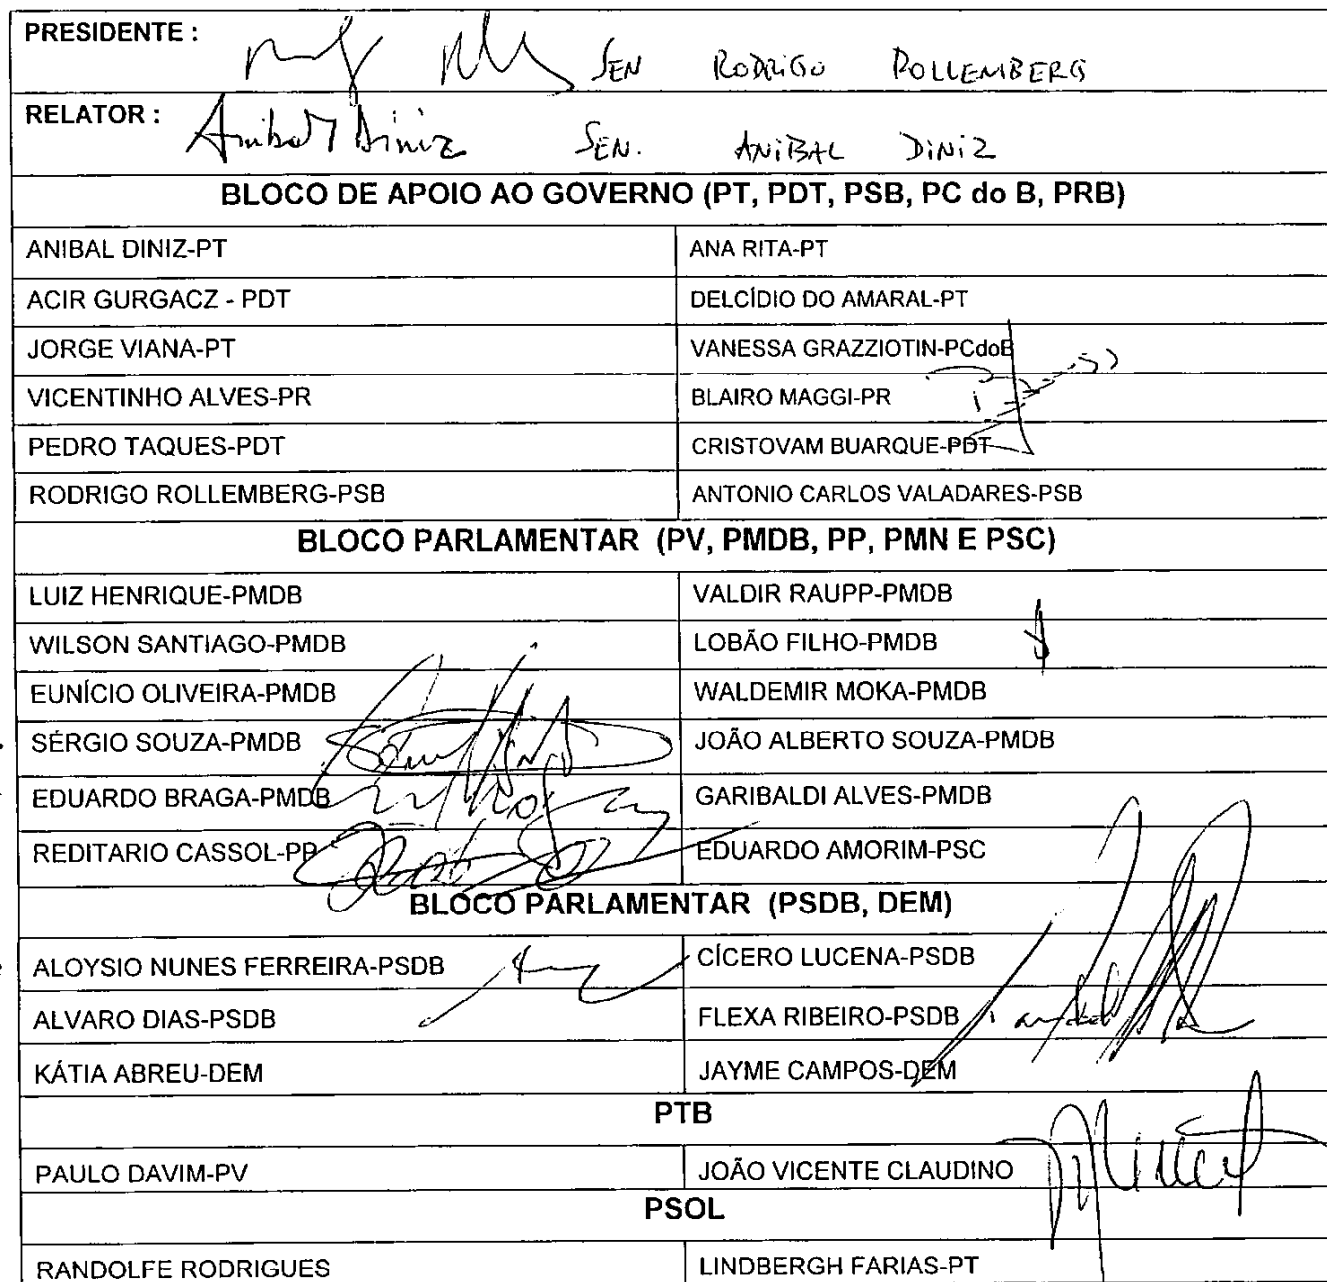 PRESIDENTE :
SEN RODRIGO ROLLEMBERG
RELATOR :
Anibal Diniz SEN. ANIBAL DINIZ
BLOCO DE APOIO AO GOVERNO (PT, PDT, PSB, PC do B, PRB)
ANIBAL DINIZ-PT ANA RITA-PT
ACIR GURGACZ - PDT DELCÍDIO DO AMARAL-PT
JORGE VIANA-PT VANESSA GRAZZIOTIN-PCdoB
VICENTINHO ALVES-PR BLAIRO MAGGI-PR
PEDRO TAQUES-PDT CRISTOVAM BUARQUE-PDT
RODRIGO ROLLEMBERG-PSB ANTONIO CARLOS VALADARES-PSB
BLOCO PARLAMENTAR (PV, PMDB, PP, PMN E PSC)
LUIZ HENRIQUE-PMDB VALDIR RAUPP-PMDB
WILSON SANTIAGO-PMDB LOBÃO FILHO-PMDB
EUNÍCIO OLIVEIRA-PMDB WALDEMIR MOKA-PMDB
SÉRGIO SOUZA-PMDB JOÃO ALBERTO SOUZA-PMDB
EDUARDO BRAGA-PMDB GARIBALDI ALVES-PMDB
REDITARIO CASSOL-PP EDUARDO AMORIM-PSC
BLOCO PARLAMENTAR (PSDB, DEM)
ALOYSIO NUNES FERREIRA-PSDB CÍCERO LUCENA-PSDB
ALVARO DIAS-PSDB FLEXA RIBEIRO-PSDB
KÁTIA ABREU-DEM JAYME CAMPOS-DEM
PTB
PAULO DAVIM-PV JOÃO VICENTE CLAUDINO
PSOL
RANDOLFE RODRIGUES LINDBERGH FARIAS-PT